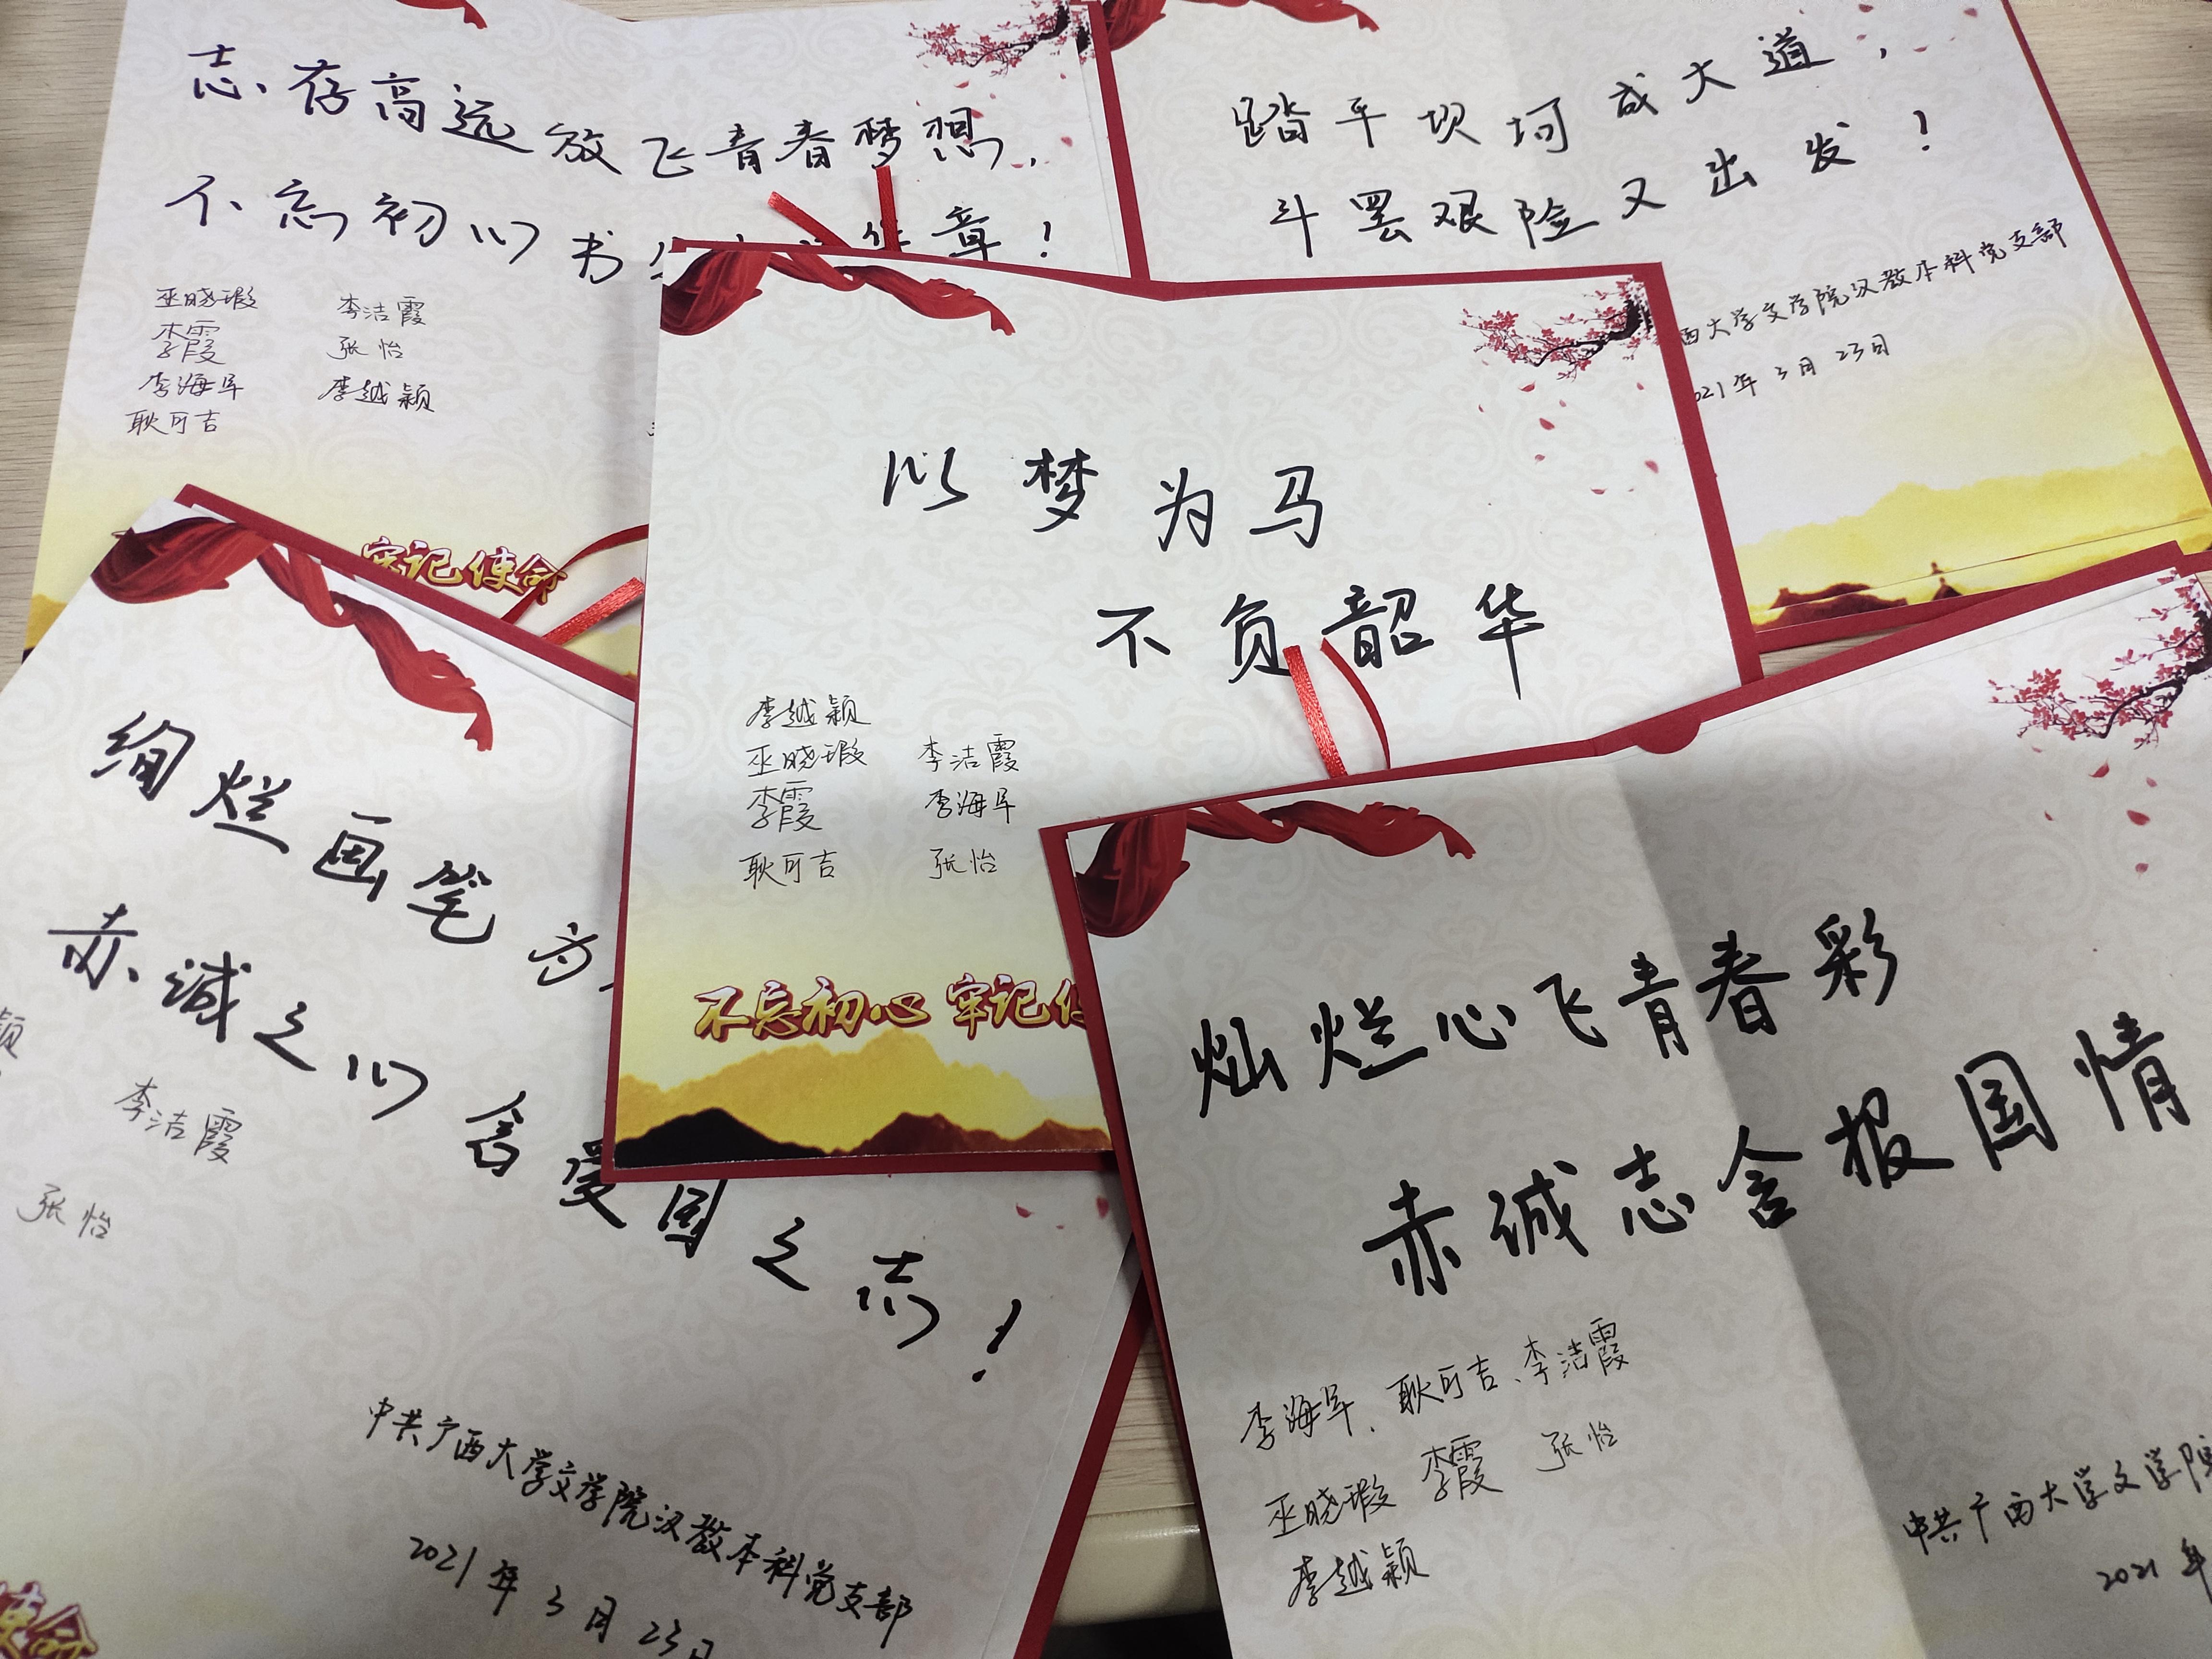 志存高远放飞青春梦想,
不忘初心书
章!
巫晓瑕 李洁霞
李霞 张怡
李海军 李越颖
耿可吉
牢记使命
踏平坝坷成大道,
斗罢艰险又出发!
西大学文学院汉教本科党支部
021年3月23日
以梦为马
不负韶华
李越颖
巫晓瑕 李洁霞
李霞 李海军
耿可吉 张怡
不忘初心 牢记
绚烂画笔
赤诚之心含爱国之志!
颖
李洁霞
张怡
中共广西大学文学院汉教本科党支部
2021年3月23日
使命
灿烂心飞青春彩
赤诚志含报国情
李海军、耿可吉、李洁霞
巫晓瑕 李霞 张怡
李越颖
中共广西大学文学院
2021年